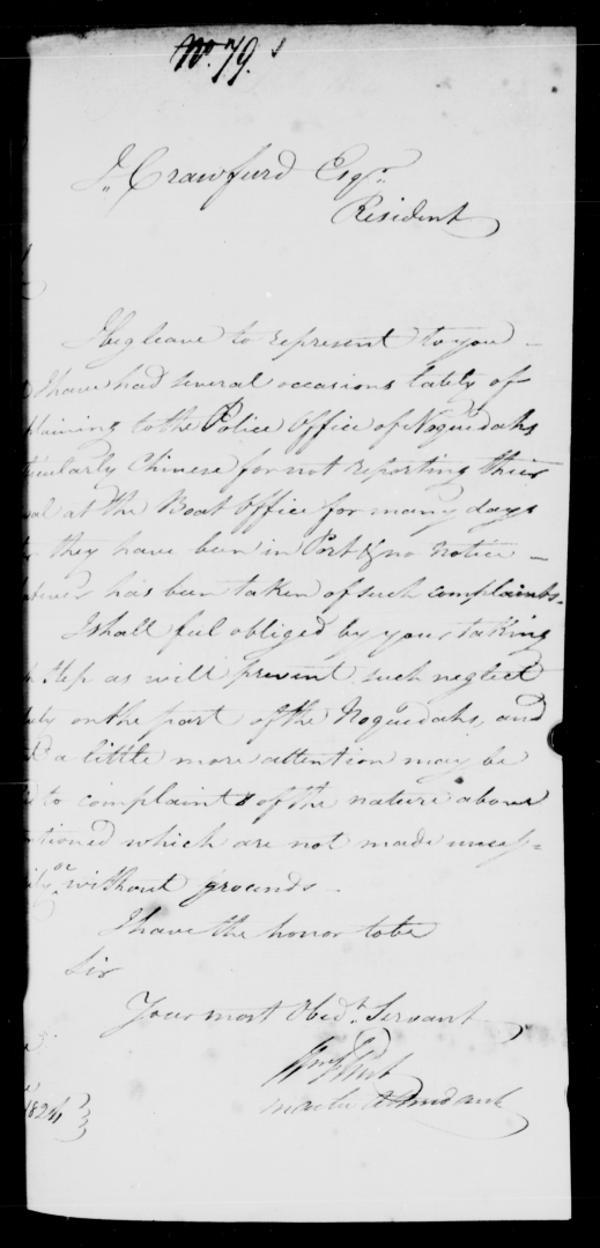 No. 79.
J. Crawfurd Esqr.
Resident
I beg leave to represent to you
I have had several occasions lately of
plaining to the Police Office of Noquedahs
ticularly Chinese for not reporting their
val at the Boat Office for many days
they have been in Port & no notice
tever has been taken of such complaints.
I shall feel obliged by your taking
h step as will prevent such neglect
uty on the part of the Noquedahs, and
a little more attention may be
to complaints of the nature above
ntioned which are not made unces=
ily or without grounds
I have the honor to be
Sir
Your most Obedt. Servant
Wm
Master Attendant
1824